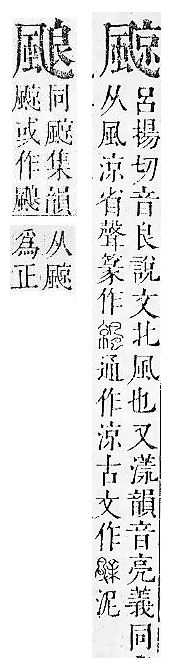 𩗬
呂揚切音良說文北風也又漾韻音亮義同
从風涼省聲篆作通作涼古文作泥
同𩗬集韻
𩗬或作
从𩗬
為正